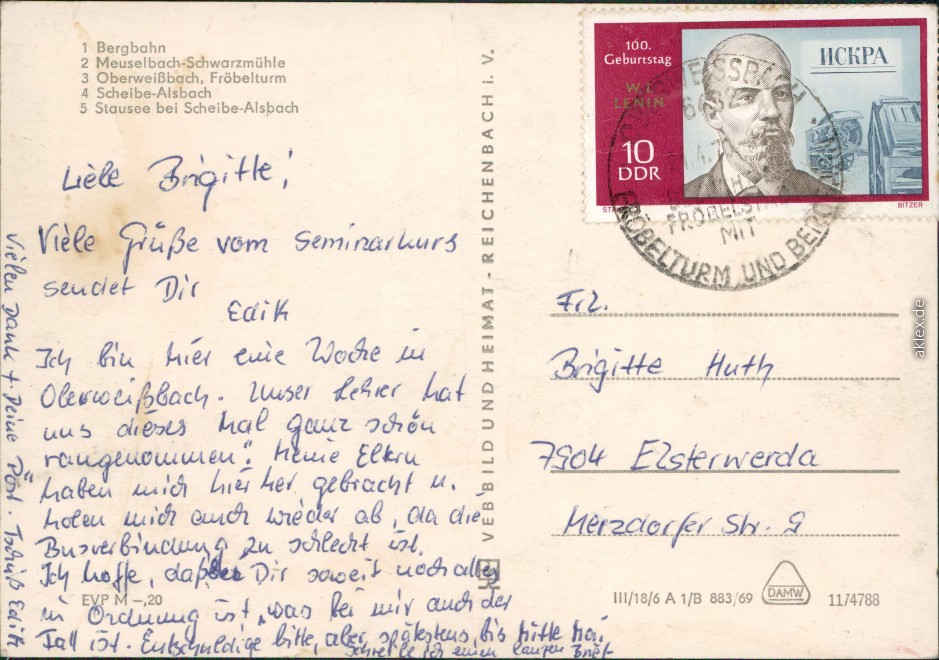 1 Bergbahn
2 Meuselbach-Schwarzmühle
3 Oberweißbach, Fröbelturm
4 Scheibe-Alsbach
5 Stausee bei Scheibe-Alsbach
Liebe Brigitte!
Viele Grüße vom Seminarkurs
sendet Dir
Edith
Ich bin hier eine Woche in
Oberweißbach. Unser Lehrer hat
uns dieses Mal ganz schön
"rangenommen". Meine Eltern
haben mich hier her gebracht u.
holen mich auch wieder ab, da die
Busverbindung zu schlecht ist.
Ich hoffe, daß bei Dir soweit noch alles
in Ordnung ist, was bei mir auch der
Fall ist. Entschuldige bitte, aber spätestens bis Mitte Mai
schreibe ich einen langen Brief
Vielen Dank f. Deine Post. Tschüß Edith
EVP M -,20
VEB BILD UND HEIMAT · REICHENBACH i. V.
100.
Geburtstag
W. I.
LENIN
10
DDR
ИСКРА
BITZER
FRÖBELTURM UND BE
MIT
Frl.
Brigitte Huth
7904 Elsterwerda
Merzdorfer Str. 9
III/18/6 A 1/B 883/69
DAMW
11/4788
aklex.de